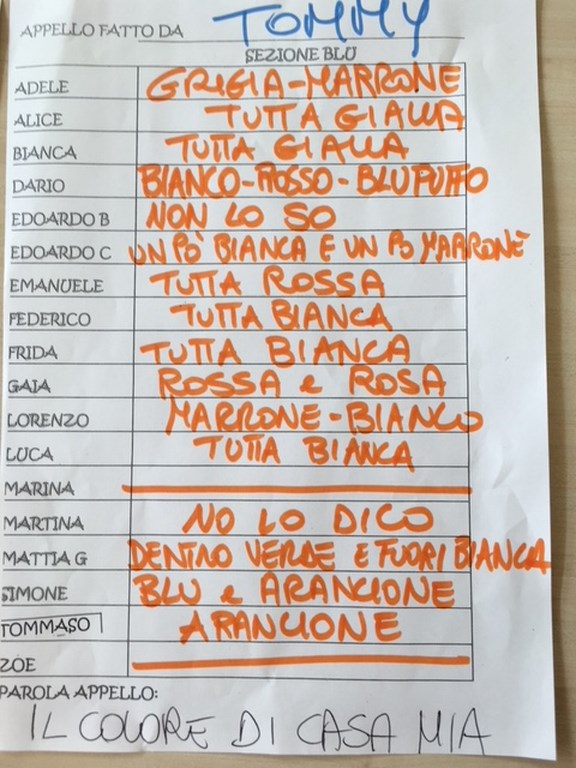 APPELLO FATTO DA TOMMY
SEZIONE BLU
ADELE GRIGIA-MARRONE
ALICE TUTTA GIALLA
BIANCA TUTTA GIALLA
DARIO BIANCO-ROSSO-BLU PUFFO
EDOARDO B NON LO SO
EDOARDO C UN PÒ BIANCA E UN PO MARRONE
EMANUELE TUTTA ROSSA
FEDERICO TUTTA BIANCA
FRIDA TUTTA BIANCA
GAIA ROSSA e ROSA
LORENZO MARRONE-BIANCO
LUCA TUTTA BIANCA
MARINA
MARTINA NO LO DICO
MATTIA G DENTRO VERDE E FUORI BIANCA
SIMONE BLU e ARANCIONE
TOMMASO ARANCIONE
ZOE
PAROLA APPELLO:
IL COLORE DI CASA MIA